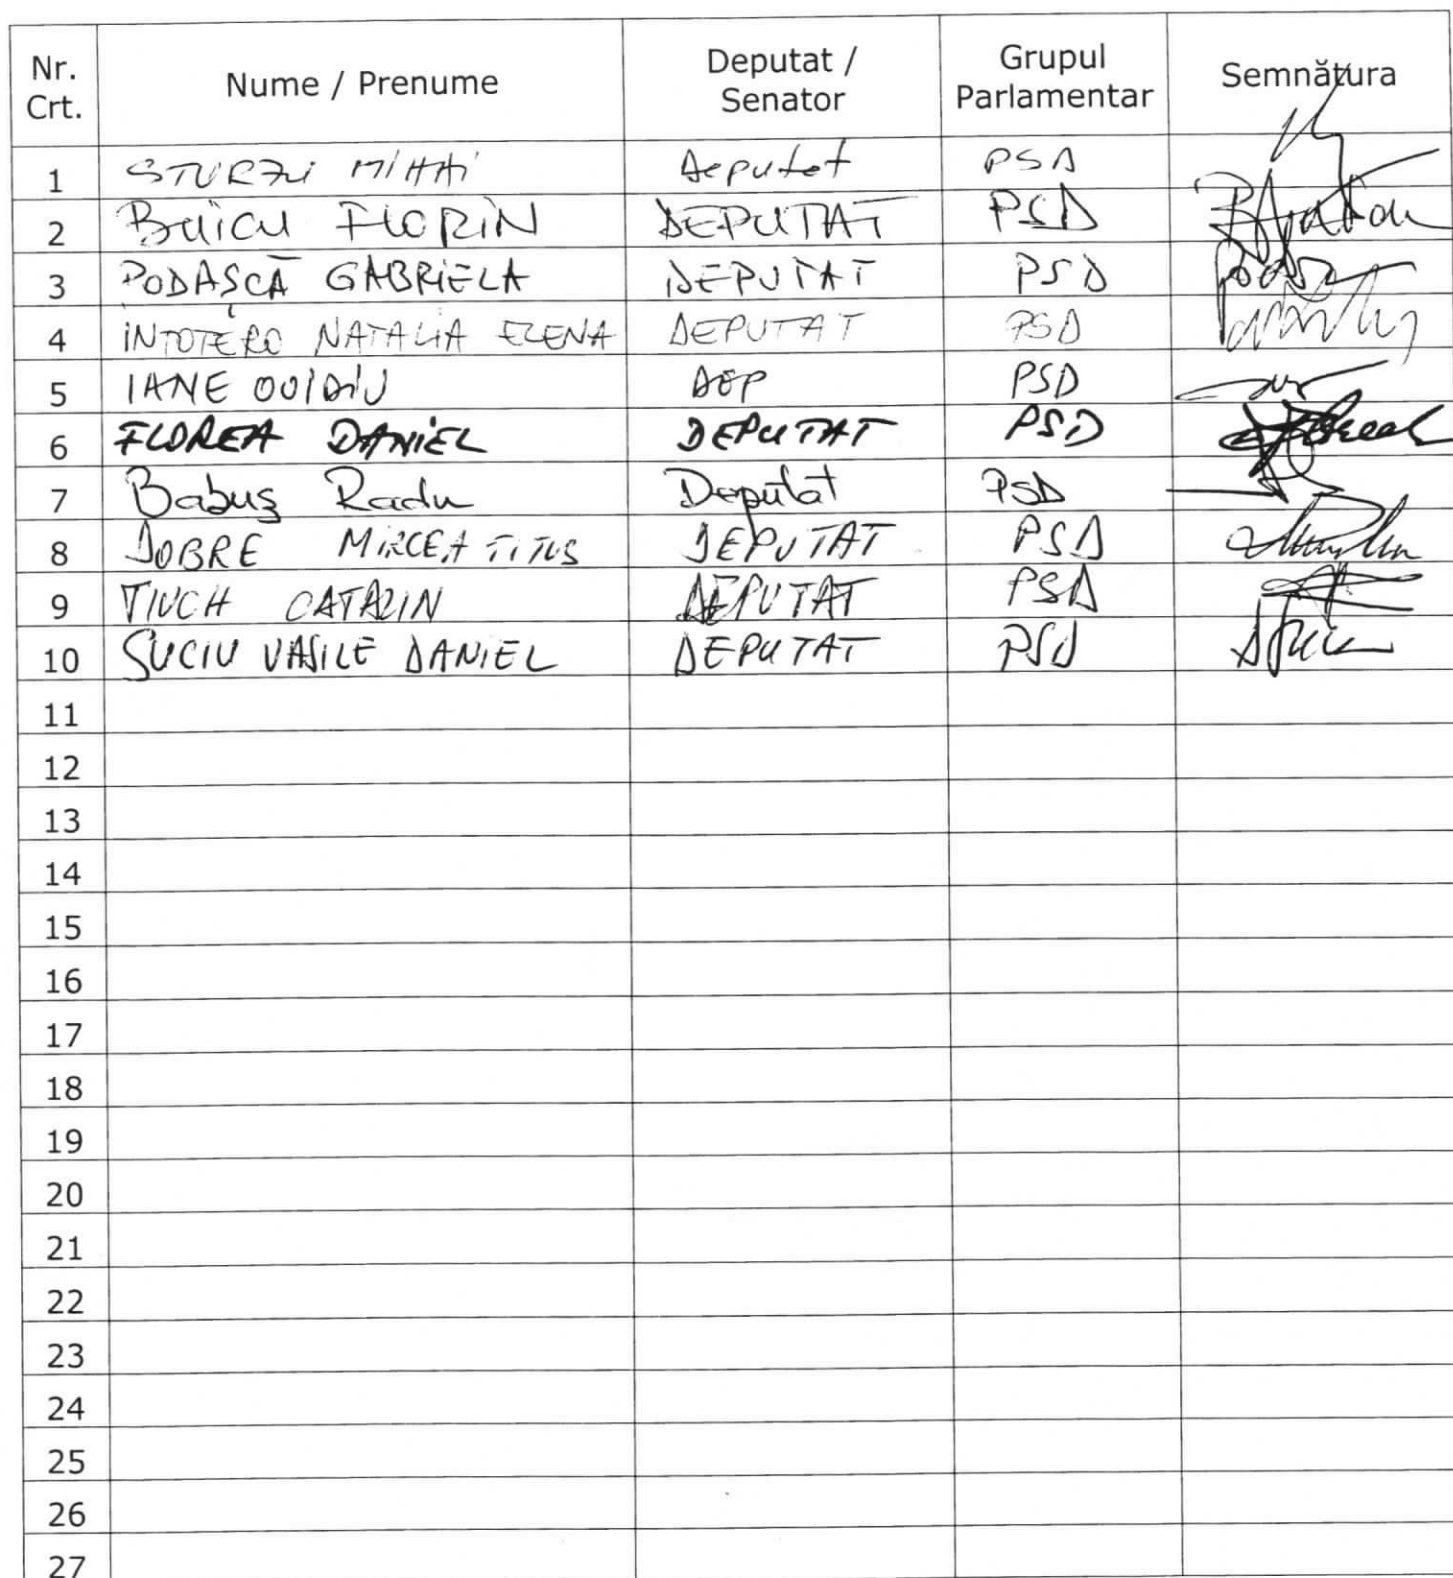 Nr. Crt. Nume / Prenume Deputat / Senator Grupul Parlamentar Semnătura
1 STURZU MIHAI Deputat PSD
2 BUICU FLORIN DEPUTAT PSD
3 PODAȘCĂ GABRIELA DEPUTAT PSD
4 INTOTERO NATALIA ELENA DEPUTAT PSD
5 IANE OVIDIU DEP PSD
6 FLOREA DANIEL DEPUTAT PSD
7 Babuș Radu Deputat PSD
8 DOBRE MIRCEA TITUS DEPUTAT PSD
9 TIUCH CATALIN DEPUTAT PSD
10 SUCIU VASILE DANIEL DEPUTAT PSD
11
12
13
14
15
16
17
18
19
20
21
22
23
24
25
26
27